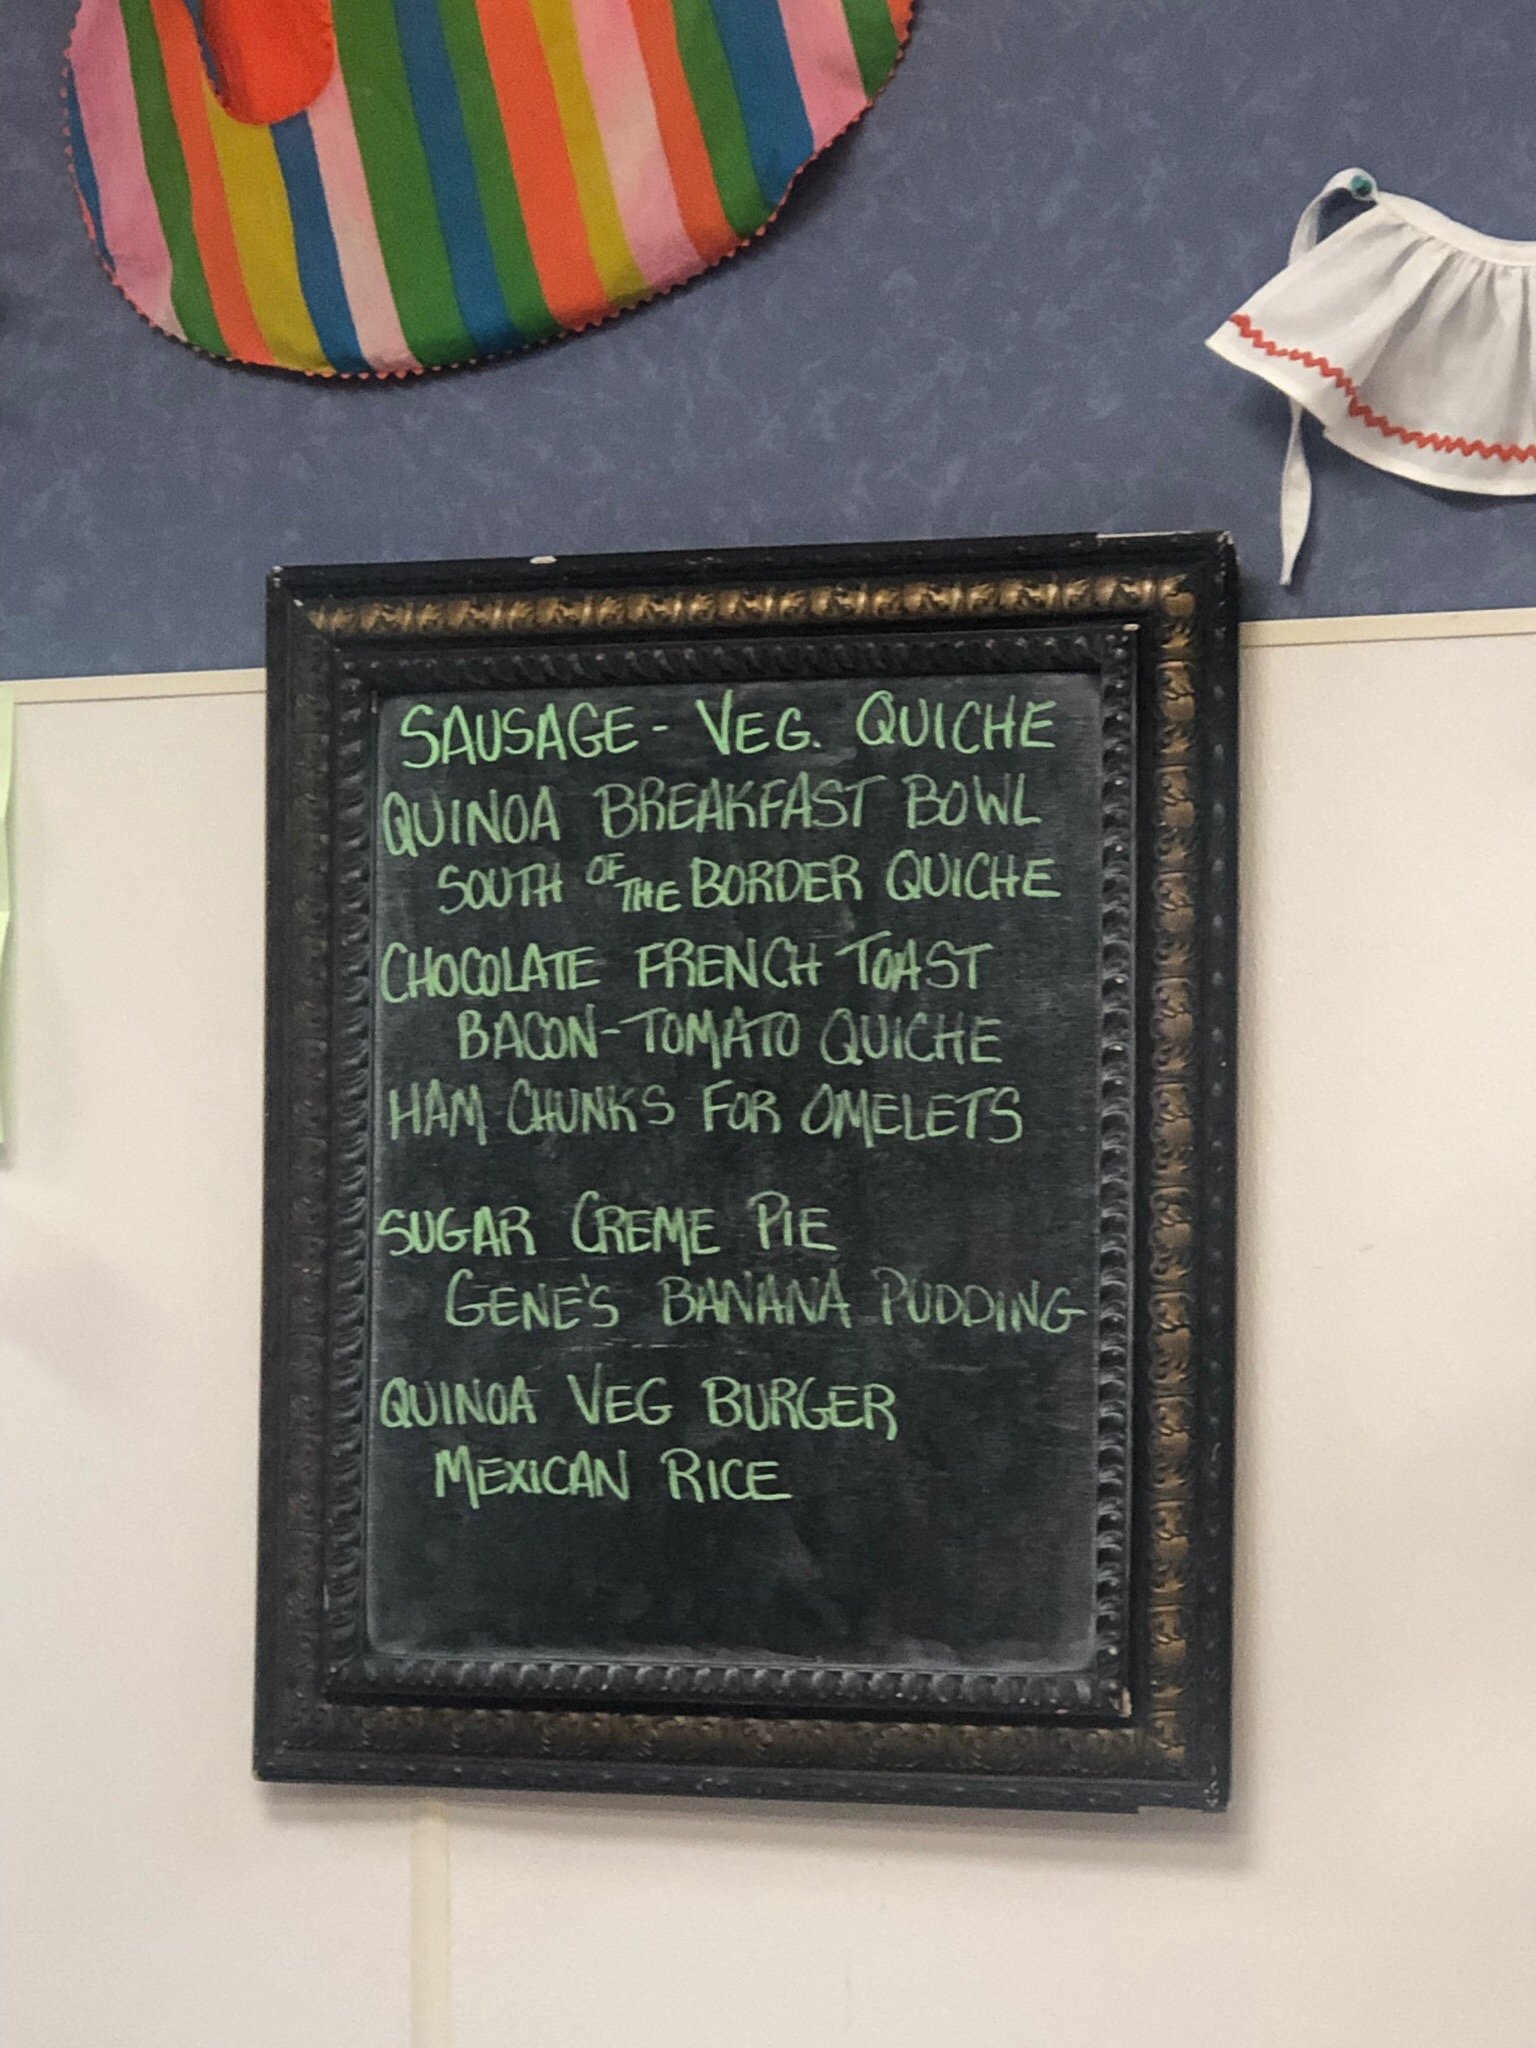 SAUSAGE - VEG. QUICHE
QUINOA BREAKFAST BOWL
SOUTH OF THE BORDER QUICHE
CHOCOLATE FRENCH TOAST
BACON-TOMATO QUICHE
HAM CHUNKS FOR OMELETS
SUGAR CREME PIE
GENE'S BANANA PUDDING
QUINOA VEG BURGER
MEXICAN RICE